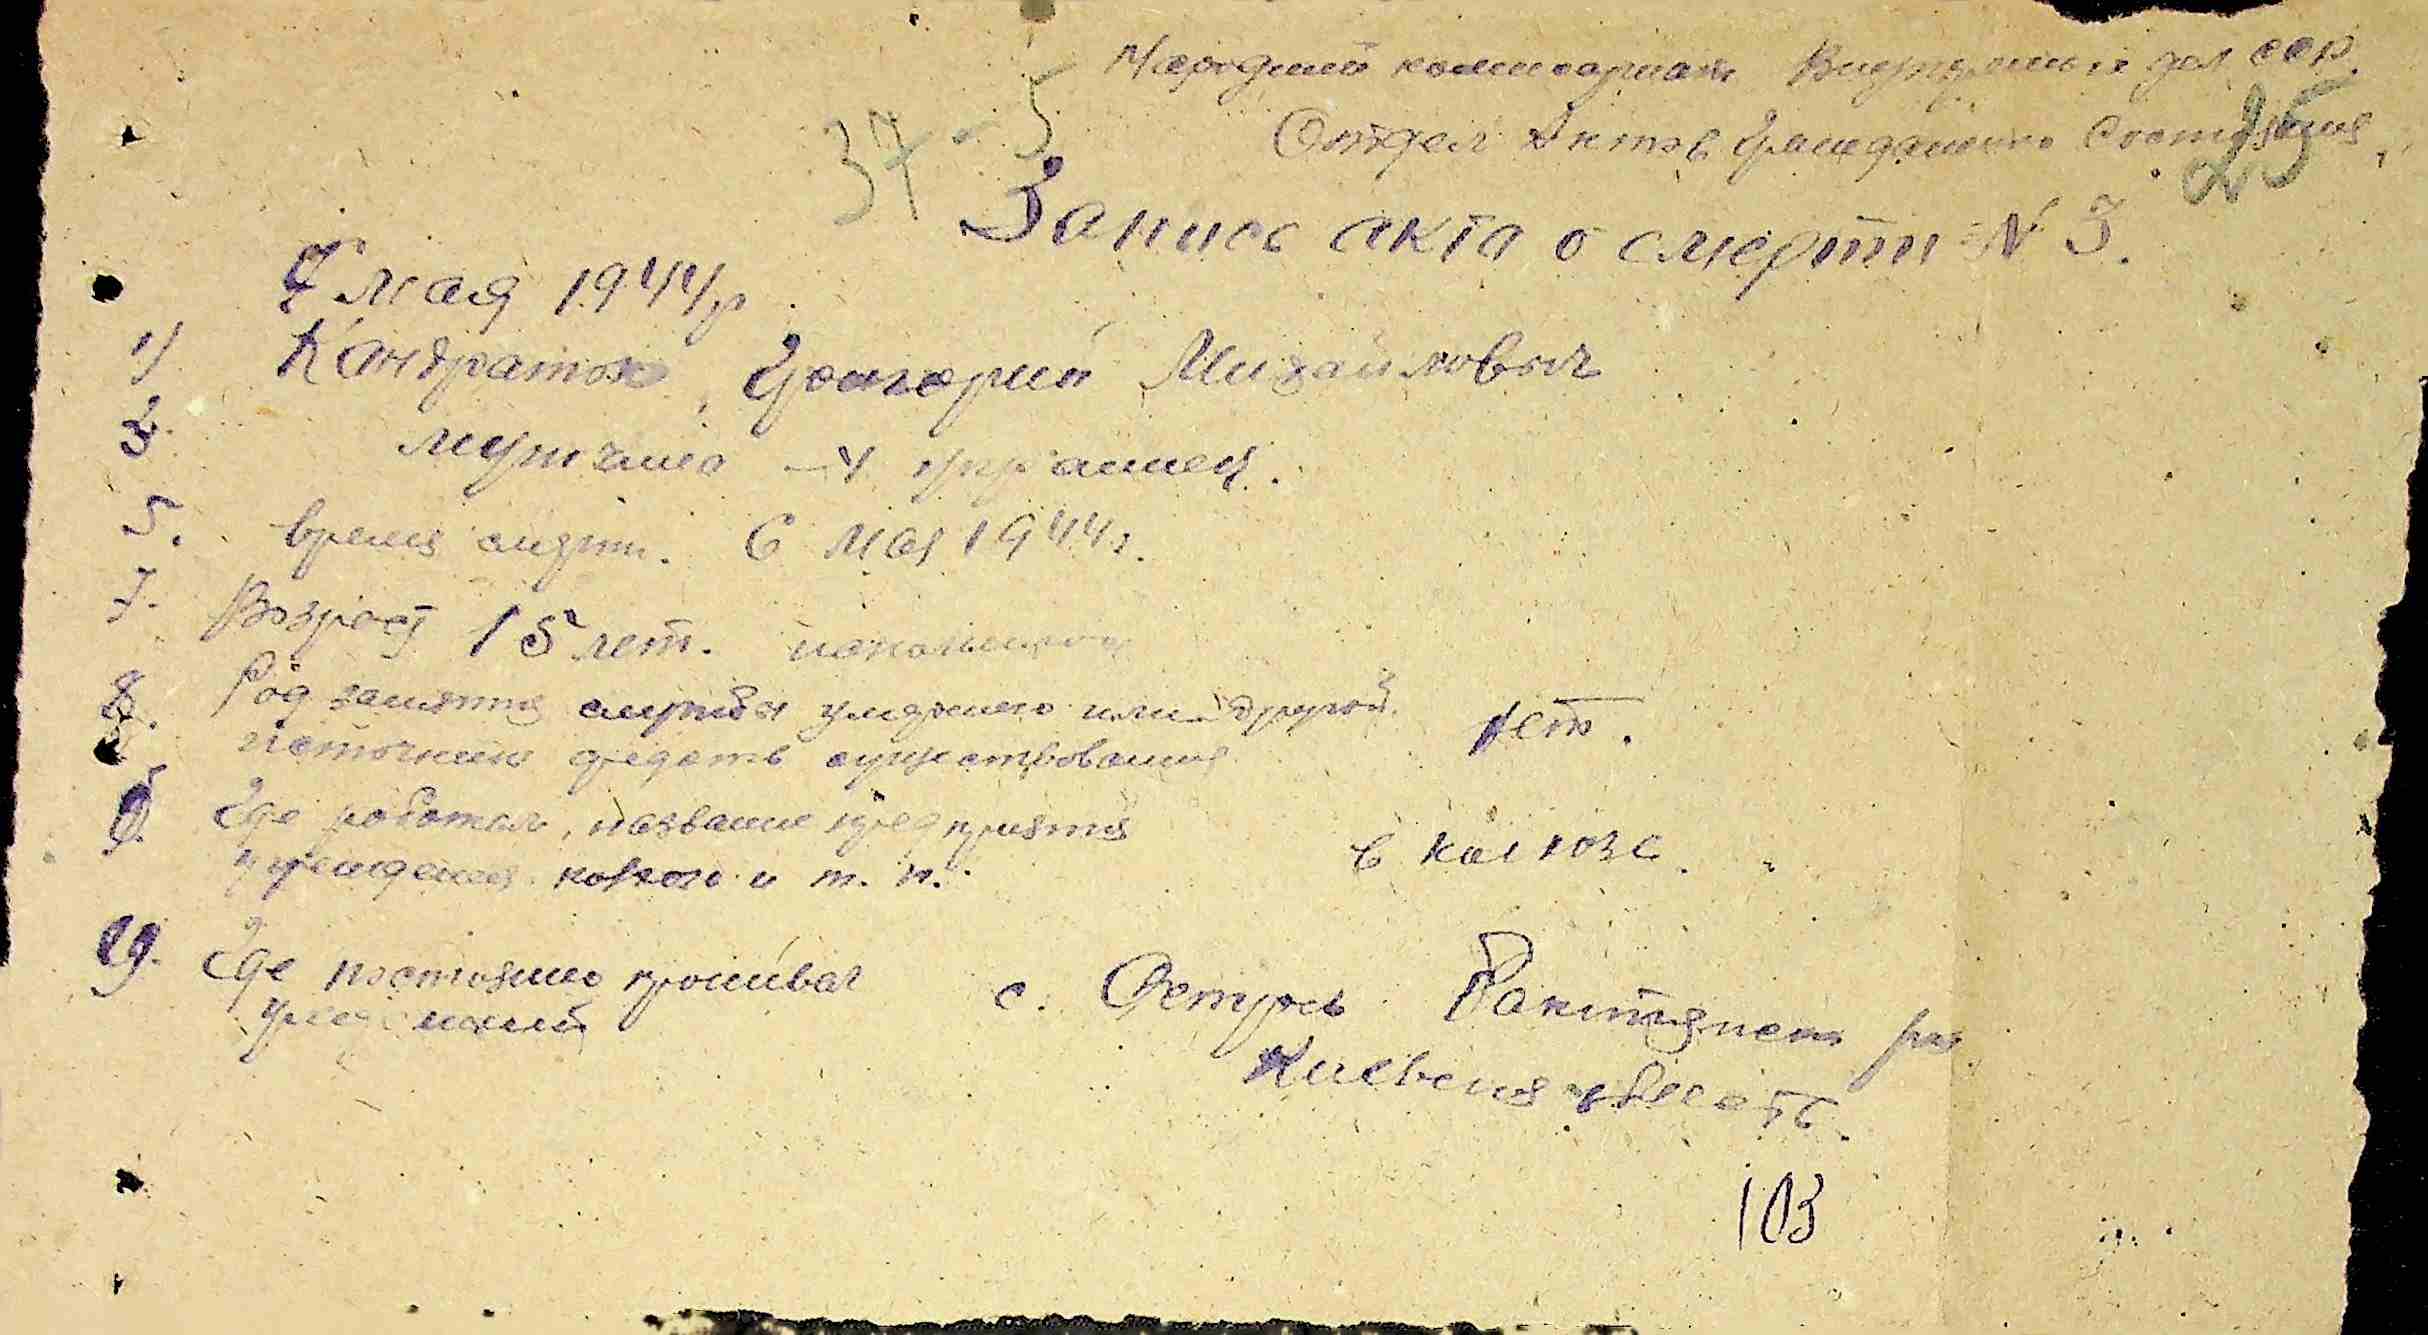 Народний комисариат Внутрених дел ССР.
37-5
Отдел Актов Гражданского Состояния,
25
Запись акта о смерти N 3.
7 мая 1944 р
1) Кондратюк Григорий Михайлович
2. 3 мужчина – 4 украинец.
5. время смерти. 6 мая 1944 г.
7. Возраст 15 лет.
8. Род занятия службы умершего или другой
источник средств существования нет.
9. Где работал, название предприятия
учреждения колхоз и т. п. в колхозе.
10. Где постоянно проживал
умерший с. Фастівський рай
Киевская область.
103